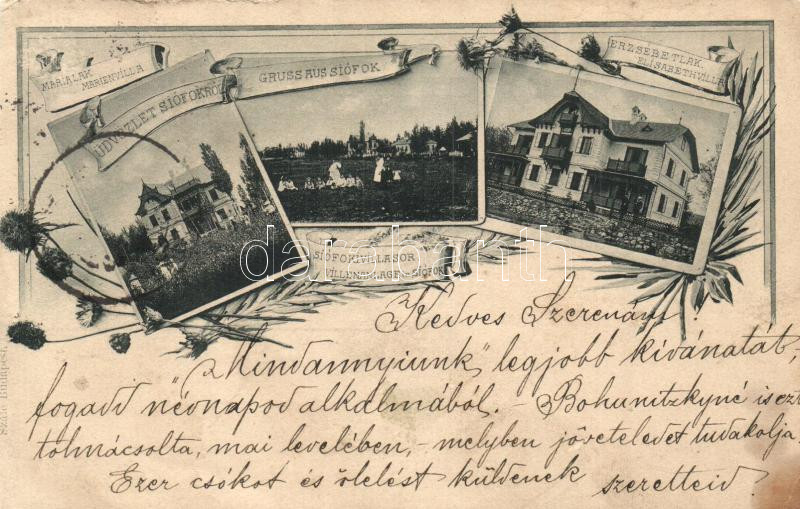 MARIALAK
MARIENVILLA
ÜDVÖZLET SIÓFOKRÓL
GRUSS AUS SIÓFOK
ERZSÉBETLAK.
ELISABETHVILLA
SIÓFOKI VILLASOR
VILLENANLAGE SIÓFOK
darabanth
Kedves Szerenám!
"Mindannyiunk" legjobb kivánatát,
fogadd névnapod alkalmából. Bohunitzkyné is ezt
tolmácsolta, mai levelében, - melyben jöveteledet tudakolja.
Ezer csókot és ölelést küldenek szeretteid!
Budapest